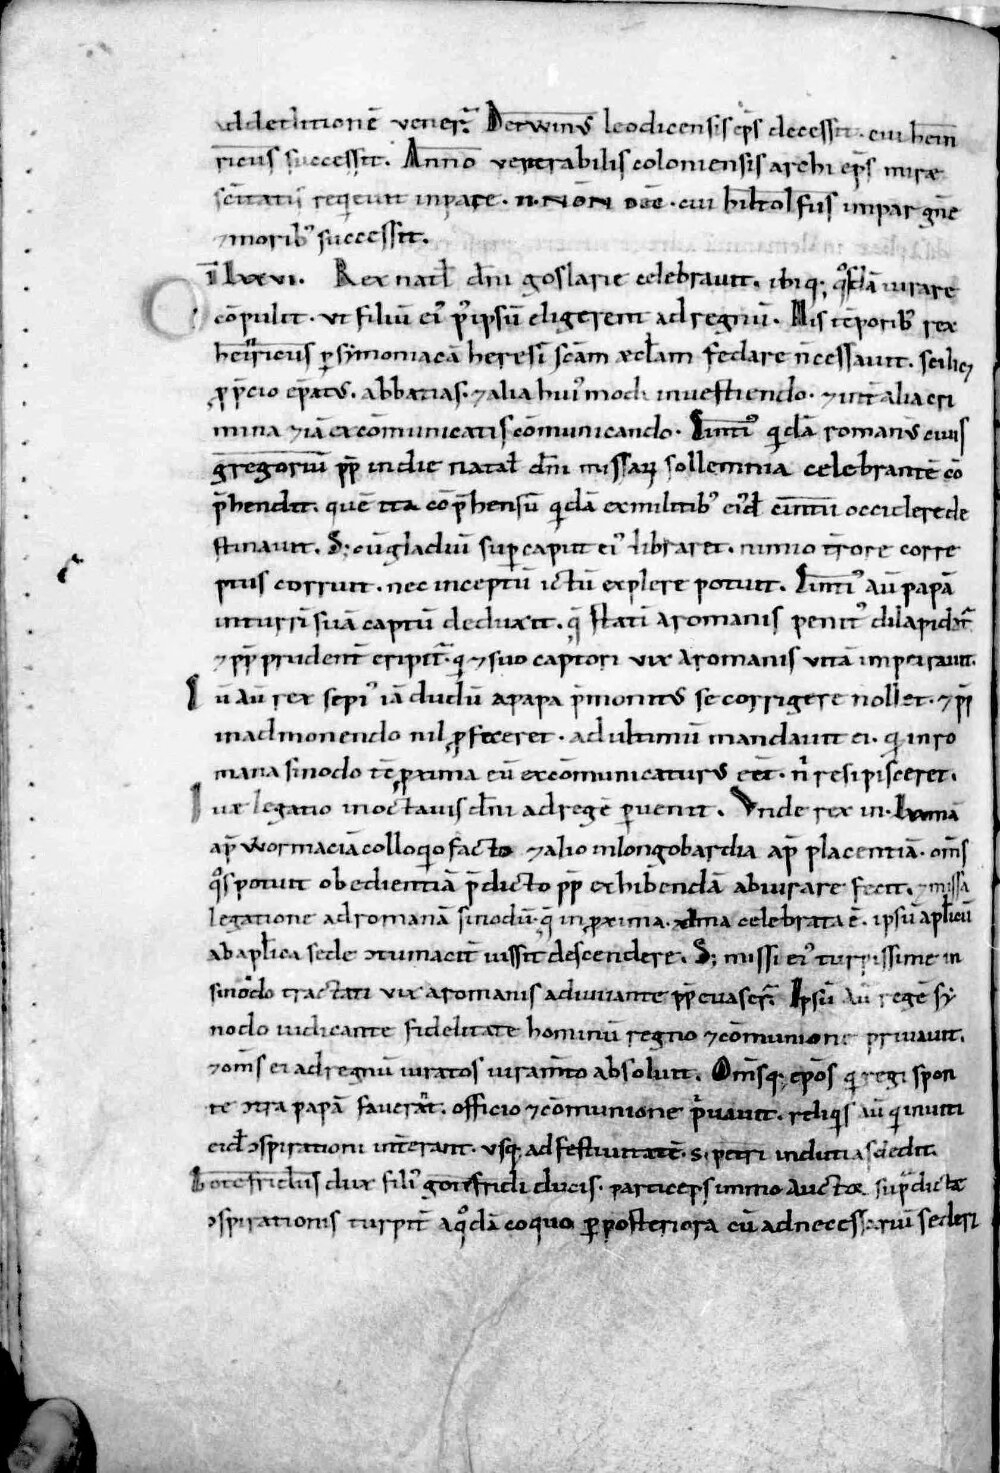 ad deditionē venerͬ. Detwinus leodicensis ep̄s decessit. cui hein
ricus successit. Anno venerabilis coloniensis archi ep̄s miræ
sc̄itatis reqievit in pace. ii. NON DEC̄. cui hiltolfus impar gn̄e
⁊ morib; successit.
Ī Lxxvi. Rex natał dn̄i goslarie celebravit. ibiq; qͦsdā iurare
cōpulit. ut filiū ei᾽ p᾽ ipsū eligerent ad regnū. His tēporib; rex
heinricus ꝑ symoniacā heresī sc̄am æcłam fedare n̄ cessavit. scilicꝫ
ꝓ p̄cio ep̄atus. abbatias. ⁊ alia hui᾽modi investiendo. ⁊ int̄ alia cri
mina ⁊iā excōmunicatis cōmunicando. Iinti᾽ qͥdā romanus civis
gregoriū pp̄ in die natał dn̄i missaꝝ sollemnia celebrantē cō
p̄hendit. quē ita cōp̄hensū qͥdā ex militib; ei᾽dē cintii occidere de
stinavit. Sꝫ cū gladiū sup caput ei᾽ libraret. nimio t̄rore corre
ptus corruit. nec inceptū ictū explere potuit. Iinti᾽ aū papā
in turrī suā captū deduxit. q̄ statī a romanis penit᾽ dilapidatͬ
⁊ pp̄ prudent̄ eripitͬ. qͥ ⁊ suo captori vix a romanis vitā impetravit.
Iū aū rex sepi᾽ iā dudū a papa p̄monitus se corrigere nollet. ⁊ pp̄
in admonendo nil ꝓfeceret. ad ultimū mandavit ei. qͥ in ro
mana sinodo tē ꝓxima eū excōmunicaturus eēt. nͥ resipisceret.
Iuæ legatio in octavis dn̄i ad regē ꝑvenit. Unde rex in. Lxxmā
ap̄ wormaciā colloqͥo facto ⁊ alio in longobardia ap̄ placentiā. om̄s
qͦs potuit obedientiā p̄dicto pp̄ exhibendā abiurare fecit. ⁊ missa
legatione ad romanā sinodū. q̄ in ꝓxima. xłma celebrata ē. ipsū apłicū
ab apłica sede ↄtumacit̄ iussit descendere. Sꝫ missi ei᾽ turpissime in
sinodo tractati vix a romanis adiuvante pp̄ evaserͬ. Ipsū aū regē sy
nodo iudicante fidelitate hominū regno ⁊ cōmunione privavit.
⁊ om̄s ei ad regnū iuratos iuram̄to absolvit. Om̄sq; ep̄os qͥ regi spon
te ↄtra papā faverāt. officio ⁊ cōmunione pͥvavit. reliqͥs aū qͥ inviti
eidē ↄspirationi int̄erant. usq; ad festivitatē. s. petri indutias dedit.
Gotefridus dux fili᾽ gotefridi ducis. particeps immo auctor sup̄dictæ
ↄspirationis turpit̄ a qͦdā coquo ꝑ posteriora cū ad necessariū sederꝫ